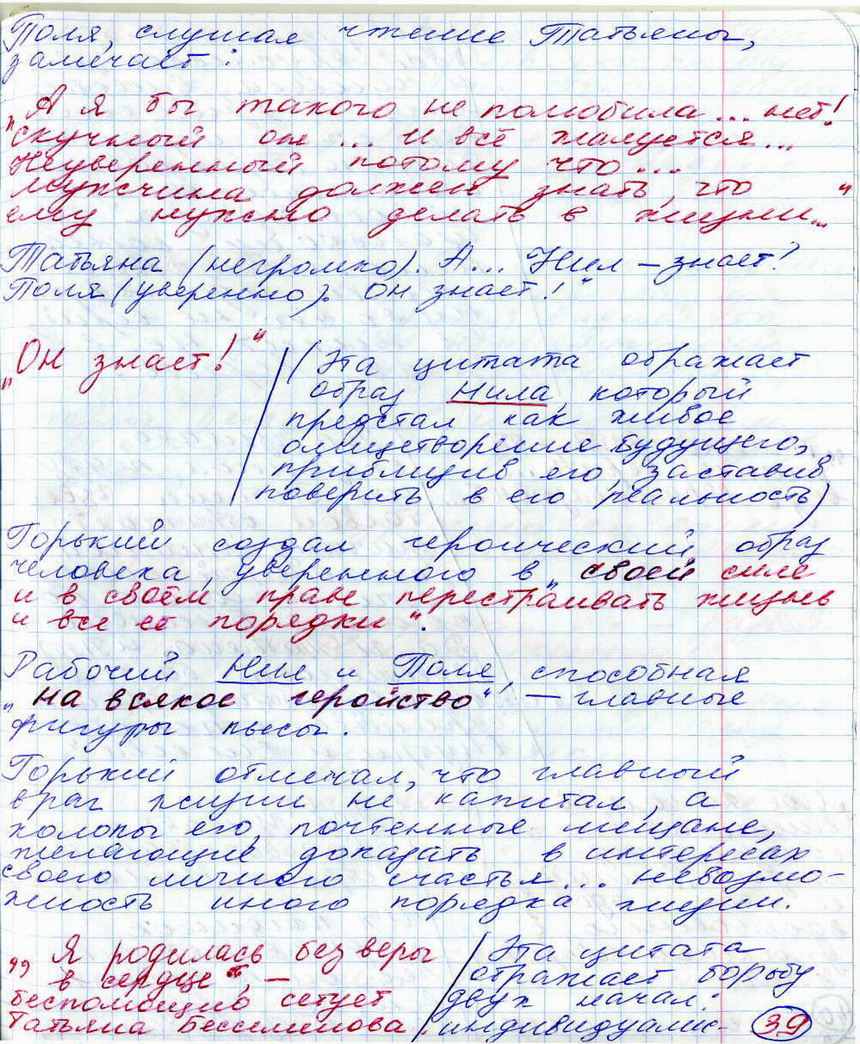 Поля, слушая чтение Татьяны,
замечает:
„А я бы такого не полюбила... нет!
Скучный он ... и всё жалуется...
Неуверенный потому что...
Мужчина должен знать, что
ему нужно делать в жизни..."
Татьяна (негромко). А... Нил – знает?
Поля (уверенно). Он знает!"
„Он знает!"
(Эта цитата отражает
образ Нила, который
предстал как живое
олицетворение будущего,
приблизив его, заставив
поверить в его реальность)
Горький создал героический образ
человека, уверенного в „своей силе
и в своём праве перестраивать жизнь
и все её порядки".
Рабочий Нил и Поля, способная
„на всякое геройство" – главные
фигуры пьесы.
Горький отмечал, что главный
враг жизни не капитал, а
холопы его, почтенные мещане,
желающие доказать в интересах
своего личного счастья... невозмо-
жность иного порядка жизни.
„Я родилась без веры
в сердце", –
беспомощно сетует
Татьяна Бессеменова.
Эта цитата
отражает борьбу
двух начал:
индивидуалис-
39